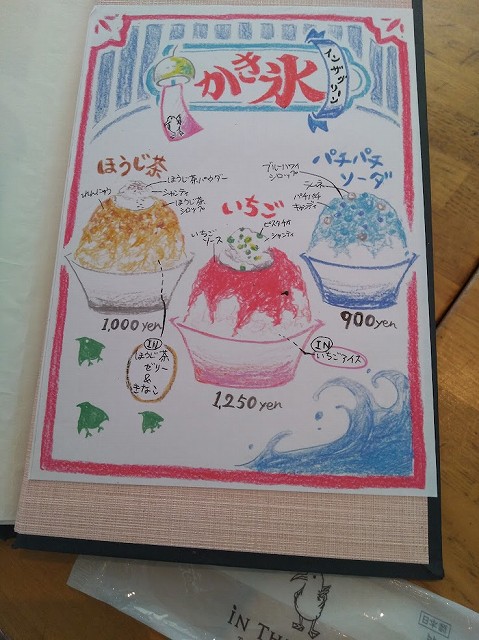 かき氷
インザグリーン
ほうじ茶
れんにゅう
ほうじ茶パウダー
シャンティ
ほうじ茶
シロップ
1,000 yen
IN
ほうじ茶
ゼリー
&
きなこ
いちご
いちご
ソース
ピスタチオ
シャンティ
IN
いちごアイス
1,250 yen
パチパチ
ソーダ
ブルーハワイ
シロップ
パチパチ
キャンディ
900 yen
iN TH
日本製